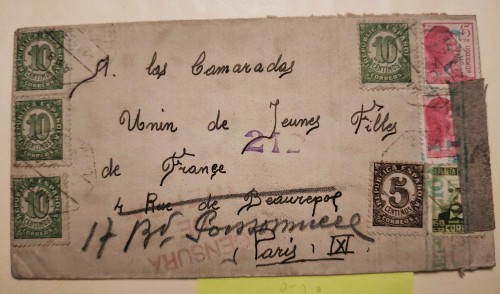 10
CENTIMOS
CORREOS
10
CENTIMOS
CORREOS
10
CENTIMOS
CORREOS
REPUBLICA ESPAÑOLA
10
CENTIMOS
CORREOS
A. las Camaradas
Union de Jeunes Filles
212
de France
4 Rue de Beaurepos
17 Bd. Poissonniere
(Paris) IX
REPUBLICA ESPAÑOLA
5
CENTIMOS
CORREOS
CENSURA